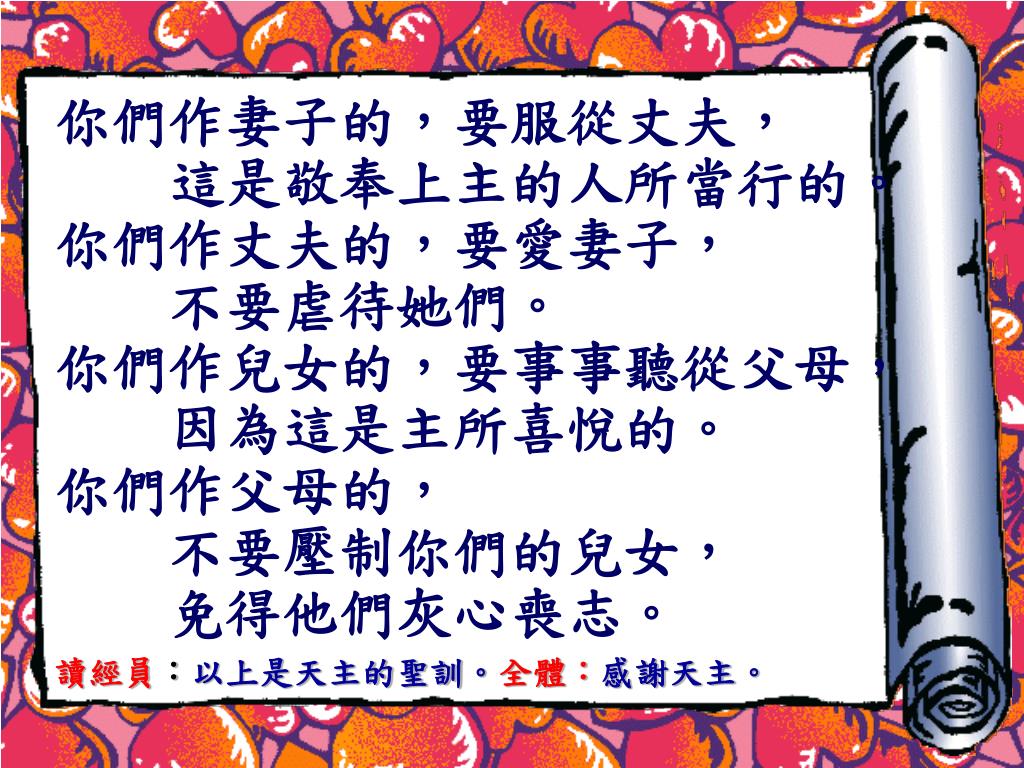 你們作妻子的，要服從丈夫，
這是敬奉上主的人所當行的。
你們作丈夫的，要愛妻子，
不要虐待她們。
你們作兒女的，要事事聽從父母，
因為這是主所喜悅的。
你們作父母的，
不要壓制你們的兒女，
免得他們灰心喪志。
讀經員：以上是天主的聖訓。全體：感謝天主。